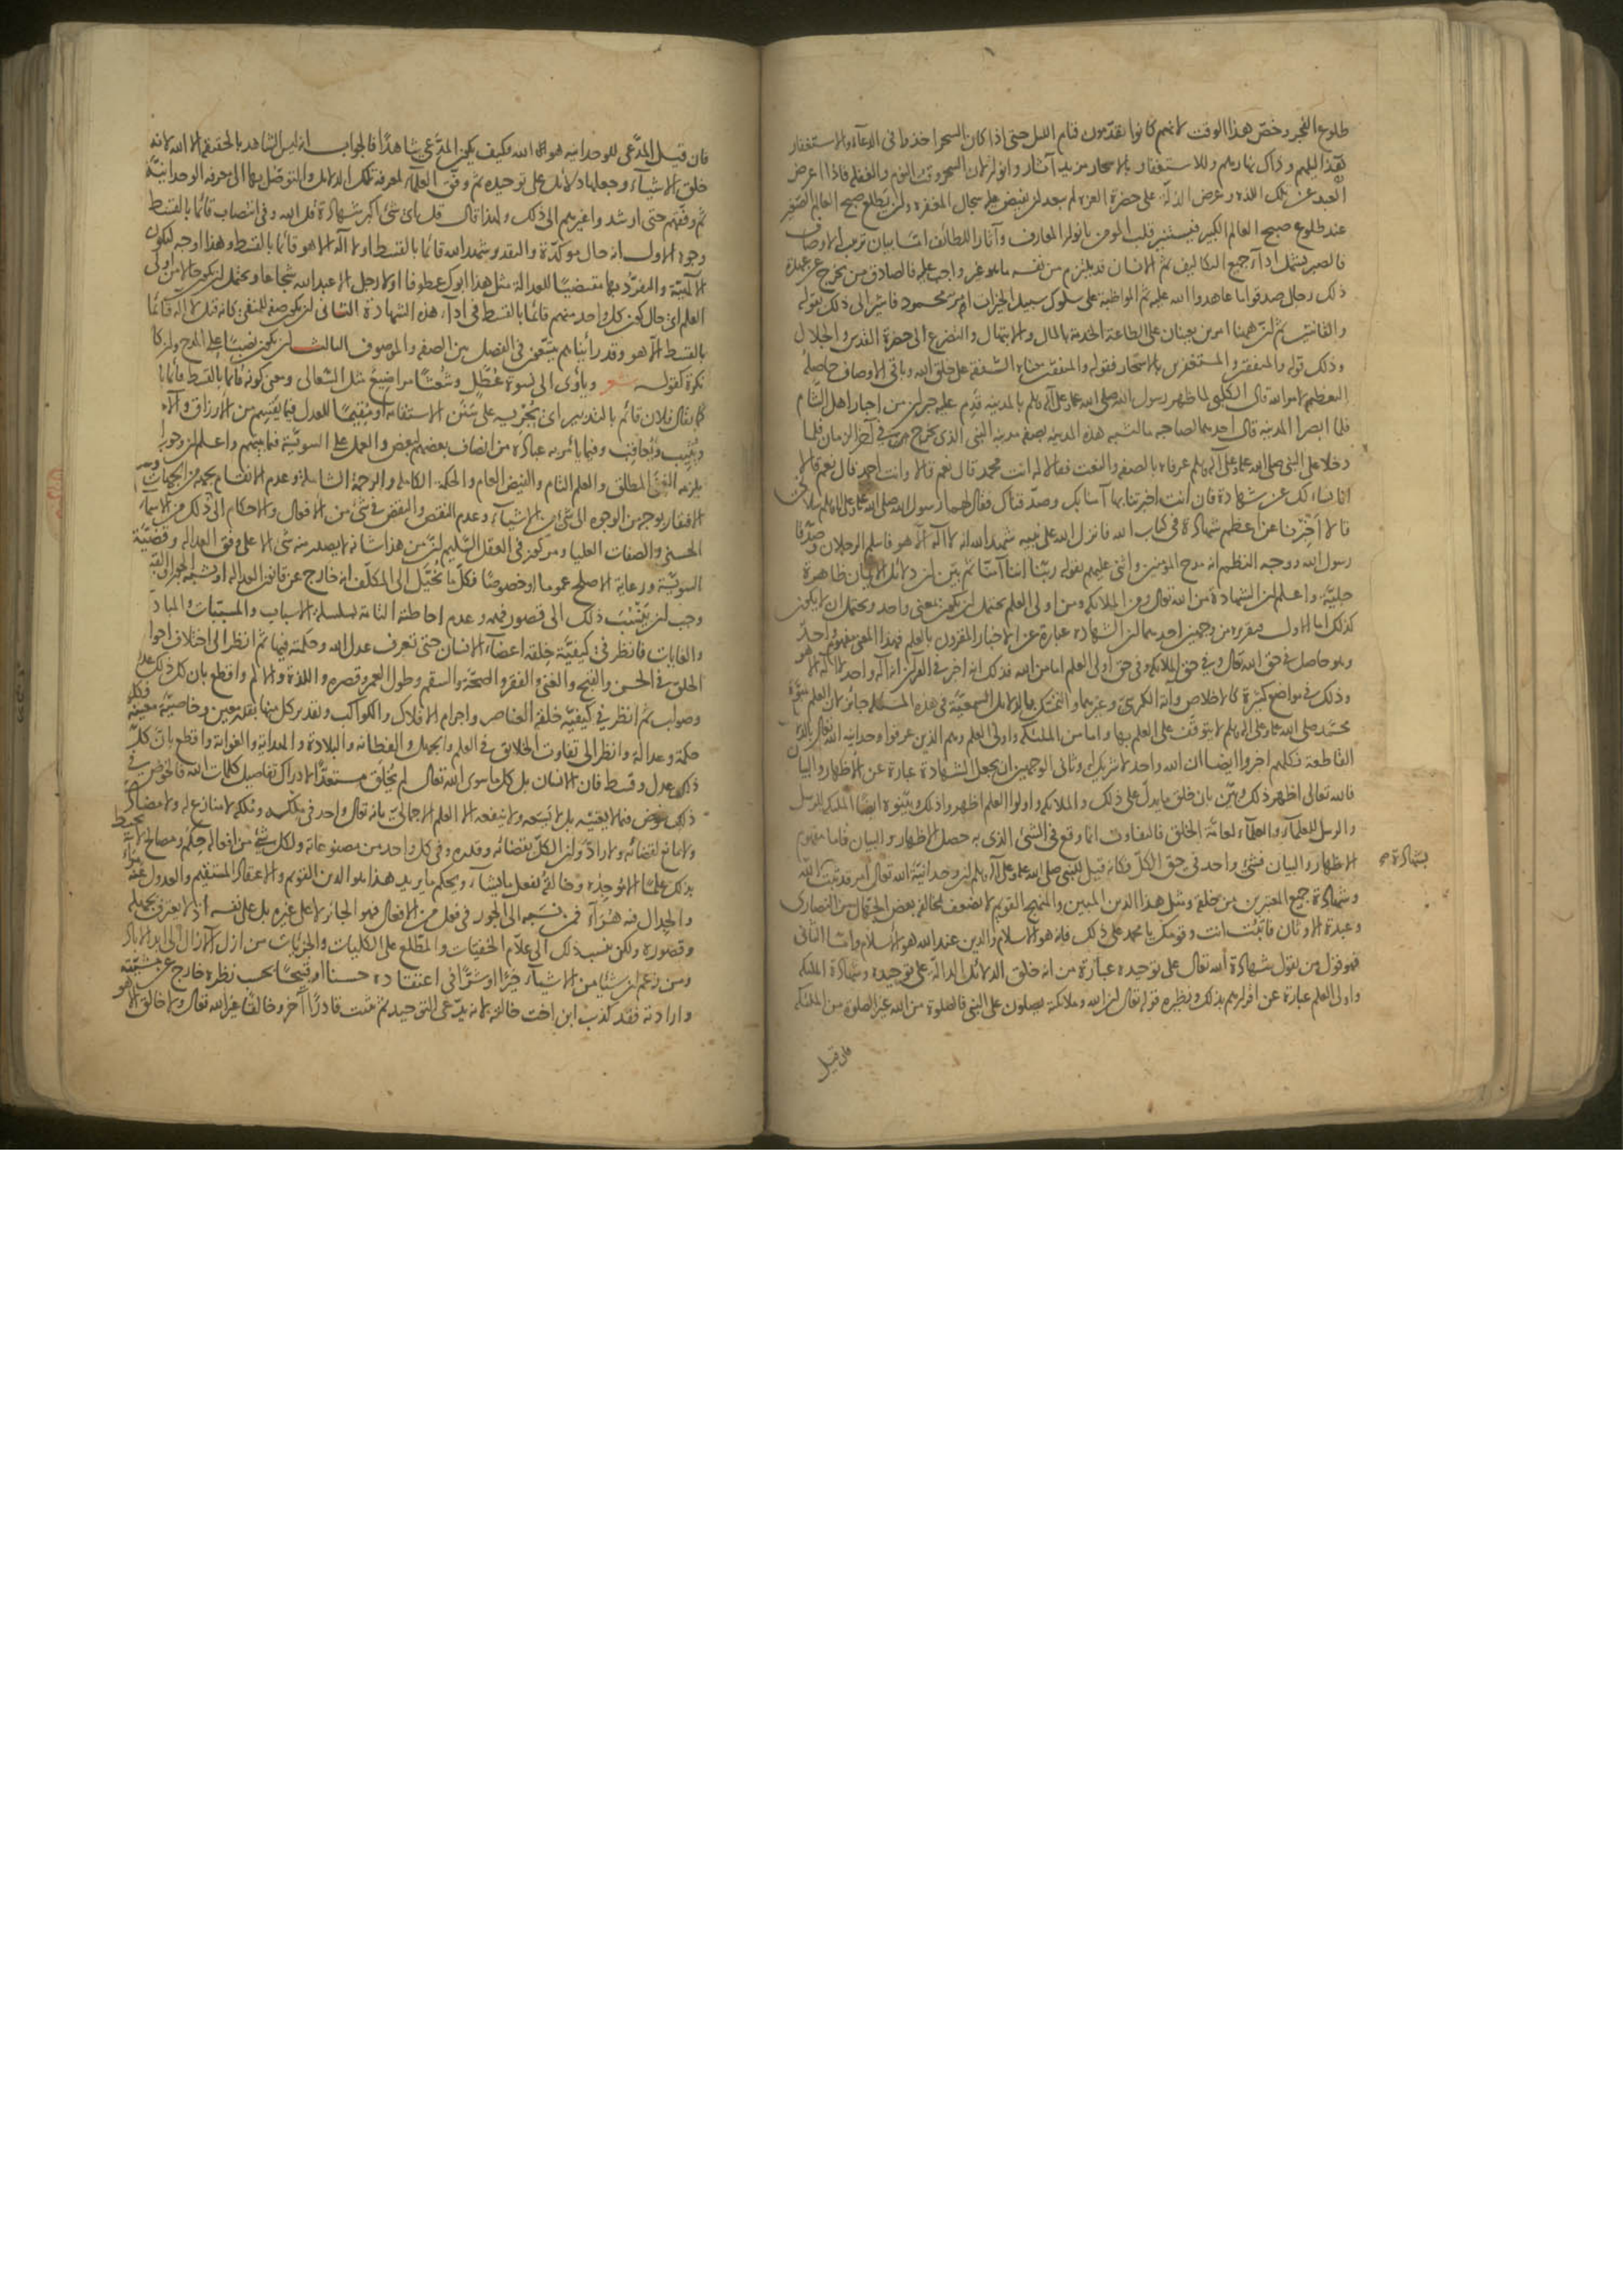 طلوع الفجر وخص هذا الوقت لانهم كانوا يقدمون قيام الليل حتى اذا كان السحر اخذوا فى الدعاء والاستغفار
فهذا ليلهم وذاك نهارهم وللاستغفار بالاسحار مزيد آثار وانوار لان السحر وقت النوم والغفلة فاذا اعرض
العبد عن تلك اللذة وعرض الذلة على حضرة العزة لم يبعد ان يفيض عليه سجال المغفرة وان يطلع صبح العالم الصغير
عند طلوع صبح العالم الكبير فيستنير قلب المومن بانوار المعارف وآثار اللطائف اما بيان ترتيب الاوصاف
فالصبر يشمل اداء جميع التكاليف ثم الانسان قد يلتزم من نفسه ما هو غير واجب عليه فالصادق من يخرج عن عهدة
ذلك رجال صدقوا ما عاهدوا الله عليه ثم المواظبة على سلوك سبيل الخيرات امر محمود فاشير الى ذلك بقوله
والقانتين ثم ان ههنا امرين يعينان على الطاعة الخدمة بالمال والابتهال والتضرع الى حضرة القدس والجلال
وذلك قوله والمنفقين والمستغفرين بالاسحار فقوله والمنفقين الشفقة على خلق الله وباقى الاوصاف حاصله
التعظيم لامر الله قال الكلبى لما ظهر رسول الله صلى الله عليه وعلى آله وسلم بالمدينة قدم عليه حبران من احبار اهل الشام
فلما ابصرا المدينة قال احدهما لصاحبه ما اشبه هذه المدينة بصفة مدينة النبى الذى يخرج فى آخر الزمان فلما
دخلا على النبى صلى الله عليه وعلى آله وسلم عرفاه بالصفة والنعت فقالا له انت محمد قال نعم قالا وانت احمد قال نعم قالا
انا نسالك عن شهادة فان انت اخبرتنا بها آمنا بك وصدقناك فقال لهما رسول الله صلى الله عليه وعلى آله وسلم سلانى
قالا اخبرنا عن اعظم شهادة فى كتاب الله فانزل الله على نبيه شهد الله انه لا اله الا هو فاسلم الرجلان وصدقا
رسول الله ووجه النظم انه مدح المؤمنين واثنى عليهم بقوله ربنا اننا آمنا ثم بين ان دلائل الايمان ظاهرة
جلية واعلم ان الشهادة من الله تعالى ومن الملائكة ومن اولى العلم يحتمل ان يكون بمعنى واحد ويحتمل ان لا يكون
كذلك اما الاول فتقريره من وجهين احدهما ان الشهادة عبارة عن الاخبار المقرون بالعلم فهذا المعنى مفهوم واحد
وهو حاصل فى حق الله تعالى وفى حق الملائكة وفى حق اولى العلم اما من الله فذلك انه اخبر فى القرآن انه اله واحد لا اله الا هو
وذلك فى مواضع كثيرة كالاخلاص وآية الكرسى وغيرهما والتمسك بالدلائل السمعية فى هذه المسئلة جائز لان العلم بنبوة
محمد صلى الله عليه وعلى آله وسلم لا يتوقف على العلم بها واما من الملائكة واولى العلم وهم الذين عرفوا وحدانية الله تعالى بالدلائل
القاطعة فكلهم اخبروا ايضا ان الله واحد لا شريك له وثانى الوجهين ان يجعل الشهادة عبارة عن الاظهار والبيان
فالله تعالى اظهر ذلك وبين بان خلق ما يدل على ذلك والملائكة واولوا العلم اظهروا ذلك وبينوه ايضا الملائكة للرسل
والرسل للعلماء والعلماء لعامة الخلق فالتفاوت انما وقع فى الشئ الذى به حصل الاظهار والبيان فاما مفهوم
الاظهار والبيان فشئ واحد فى حق الكل فكانه قيل للنبى صلى الله عليه وعلى آله وسلم ان وحدانية الله تعالى امر قد ثبت
بشهادة صح
وشهادة جميع المعتبرين من خلقه ومثل هذا الدين المبين والمنهج القويم لا يضعف بمخالفة بعض الجهال من النصارى
وعبدة الاوثان فاثبت انت وقومك يا محمد على ذلك فانه هو الاسلام والدين عند الله هو الاسلام واما الثانى
فهو قول من يقول شهادة الله تعالى على توحيده عبارة من انه خلق الدلائل الدالة على توحيده وشهادة الملائكة
واولى العلم عبارة عن اقرارهم بذلك ونظيره قوله تعالى ان الله وملائكته يصلون على النبى فالصلوة من الله غير الصلوة من الملائكة
فان قيل
فان قيل المدعى للوحدانية هو الله فكيف يكون المدعى شاهدا فالجواب انه ليس الشاهد بالحقيقة الا الله لانه
خلق الاشياء وجعلها دلائل على توحيده ثم وفق العلماء لمعرفة تلك الدلائل والتوصل بها الى معرفة الوحدانية
ثم وفقهم حتى ارشدوا غيرهم الى ذلك ولهذا قال قل اى شئ اكبر شهادة قل الله وفى انتصاب قائما بالقسط
وجوه الاول انه حال مؤكدة والتقدير شهد الله قائما بالقسط او لا اله الا هو قائما بالقسط وهذا اوجه لكون
الالهية والتفرد بها مقتضيا للعدالة مثل هذا ابوك عطوفا او لا رجل الا عبد الله شجاعا ويحتمل ان يكون حالا من اولى
العلم اى حال كون كل واحد منهم قائما بالقسط فى اداء هذه الشهادة الثانى ان يكون صفة للمنفى كانه قيل لا اله قائما
بالقسط الا هو وقد رايناهم يتسعون فى الفصل بين الصفة والموصوف الثالث ان يكون نصبا على المدح وان كان
نكرة كقوله شعر ويأوى الى نسوة عطل وشعثا مراضيع مثل السعالى ومعنى كونه قائما بالقسط قائما بالعدل
كما يقال فلان قائم بالتدبير اى يجريه على سنن الاستقامة او مقيما للعدل فيما يقسم من الارزاق والآجال
ويثيب ويعاقب وفيما يأمر به عباده من انصاف بعضهم لبعض والعمل على السوية فيما بينهم واعلم ان وجوب
يلزمه الغنى المطلق والعلم التام والفيض العام والحكمة الكاملة والرحمة الشاملة وعدم الانقسام بجهة من الجهات وعدم
الافتقار بوجه من الوجوه الى شئ من الاشياء وعدم النقص والنقض فى شئ من الافعال والاحكام الى ذلك من الاسماء
الحسنى والصفات العليا ومركوز فى العقل السليم ان من هذا شانه لا يصدر منه شئ الا على وفق العدالة وقضية
السوية ورعاية الاصلح عموما او خصوصا فكل ما يخيل الى المكلف انه خارج عن قانون العدالة او يشبه الجور
وجب ان ينسب ذلك الى قصور فهمه وعدم احاطته التامة بسلسلة الاسباب والمسببات والمبادى
والغايات فانظر فى كيفية خلقة اعضاء الانسان حتى تعرف عدل الله وحكمته فيها ثم انظر الى اختلاف احوال
الخلق فى الحسن والقبح والغنى والفقر والصحة والسقم وطول العمر وقصره واللذة والالم واقطع بان كل ذلك عدل
وصواب ثم انظر فى كيفية خلقة العناصر واجرام الافلاك والكواكب وتقدير كل منها بقدر معين وخاصية معينة
حكمة وعدالة وانظر الى تفاوت الخلائق فى العلم والجهل والفطانة والبلادة والهداية والغواية واقطع بان كل
ذلك عدل وقسط فان الانسان بل كل ما سوى الله تعالى لم يخلق مستعدا لادراك تفاصيل كلمات الله فالخوض فى
ذلك خوض فيما لا يعنيه بل لا يسعه ولا ينفعه الا العلم الاجمالى بانه تعالى واحد فى ملكه وملكه لا منازع له ولا مضاد
ولا مانع لقضائه ولا راد وان الكل بقضائه وقدره وفى كل واحد من مصنوعاته ولكل شئ من افعاله حكم ومصالح لا يحيط
بذلك علما الا موجده وخالقه يفعل ما يشاء ويحكم ما يريد هذا هو الدين القويم والاعتقاد المستقيم والعدول عنه
والجدال فيه هراء فمن نسبه الى الجور فى فعل من الافعال فهو الجائر لا على غيره بل على نفسه اذ لا يعترف بجهله
وقصوره ولكن ينسب ذلك الى علام الخفيات والمطلع على الكليات والجزئيات من ازل الآزال الى ابد الآباد
ومن زعم ان شيئا من الاشياء خيرا او شرا فى اعتقاده حسنا او قبيحا بحسب نظره خارج عن مشيئته
وارادته فقد كذب ابن اخت خالته لانه يدعى التوحيد ثم يثبت قادرا آخر وخالقا غير الله تعالى ولا خالق الا هو